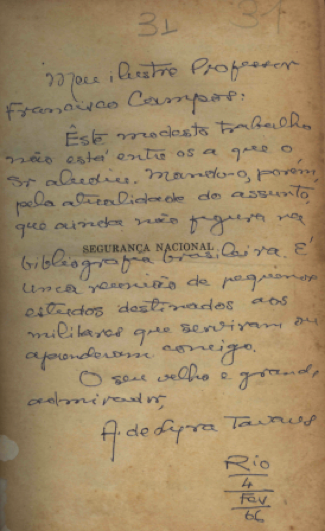 31
Meu ilustre Professor
Francisco Campos:
Êste modesto trabalho
não está entre os a que o
Sr aludiu. Mando-o, porém,
pela atualidade do assunto,
que ainda não figura na
SEGURANÇA NACIONAL
bibliografia brasileira. É
uma reunião de pequenos
estudos destinados aos
militares que serviram ou
aprenderam comigo.
O seu velho e grande
admirador,
A. de Lyra Tavares
Rio
4
Fev
66